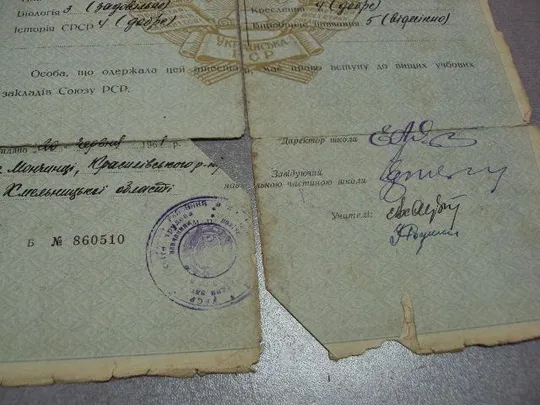 Біологія 3 (задовільно)
Історія СРСР 4 (добре)
Креслення 4 (добре)
Виробниче навчання 5 (відмінно)
УКРАЇНСЬКА
Р С Р
Особа, що одержала цей атестат, має право вступу до вищих учбових
закладів Союзу РСР.
червня 1961 р.
Мончинці, Красилівського р-ну
Хмельницької області
Б № 860510
Директор школи
Завідуючий
навчальною частиною школи
Учителі:
УРСР